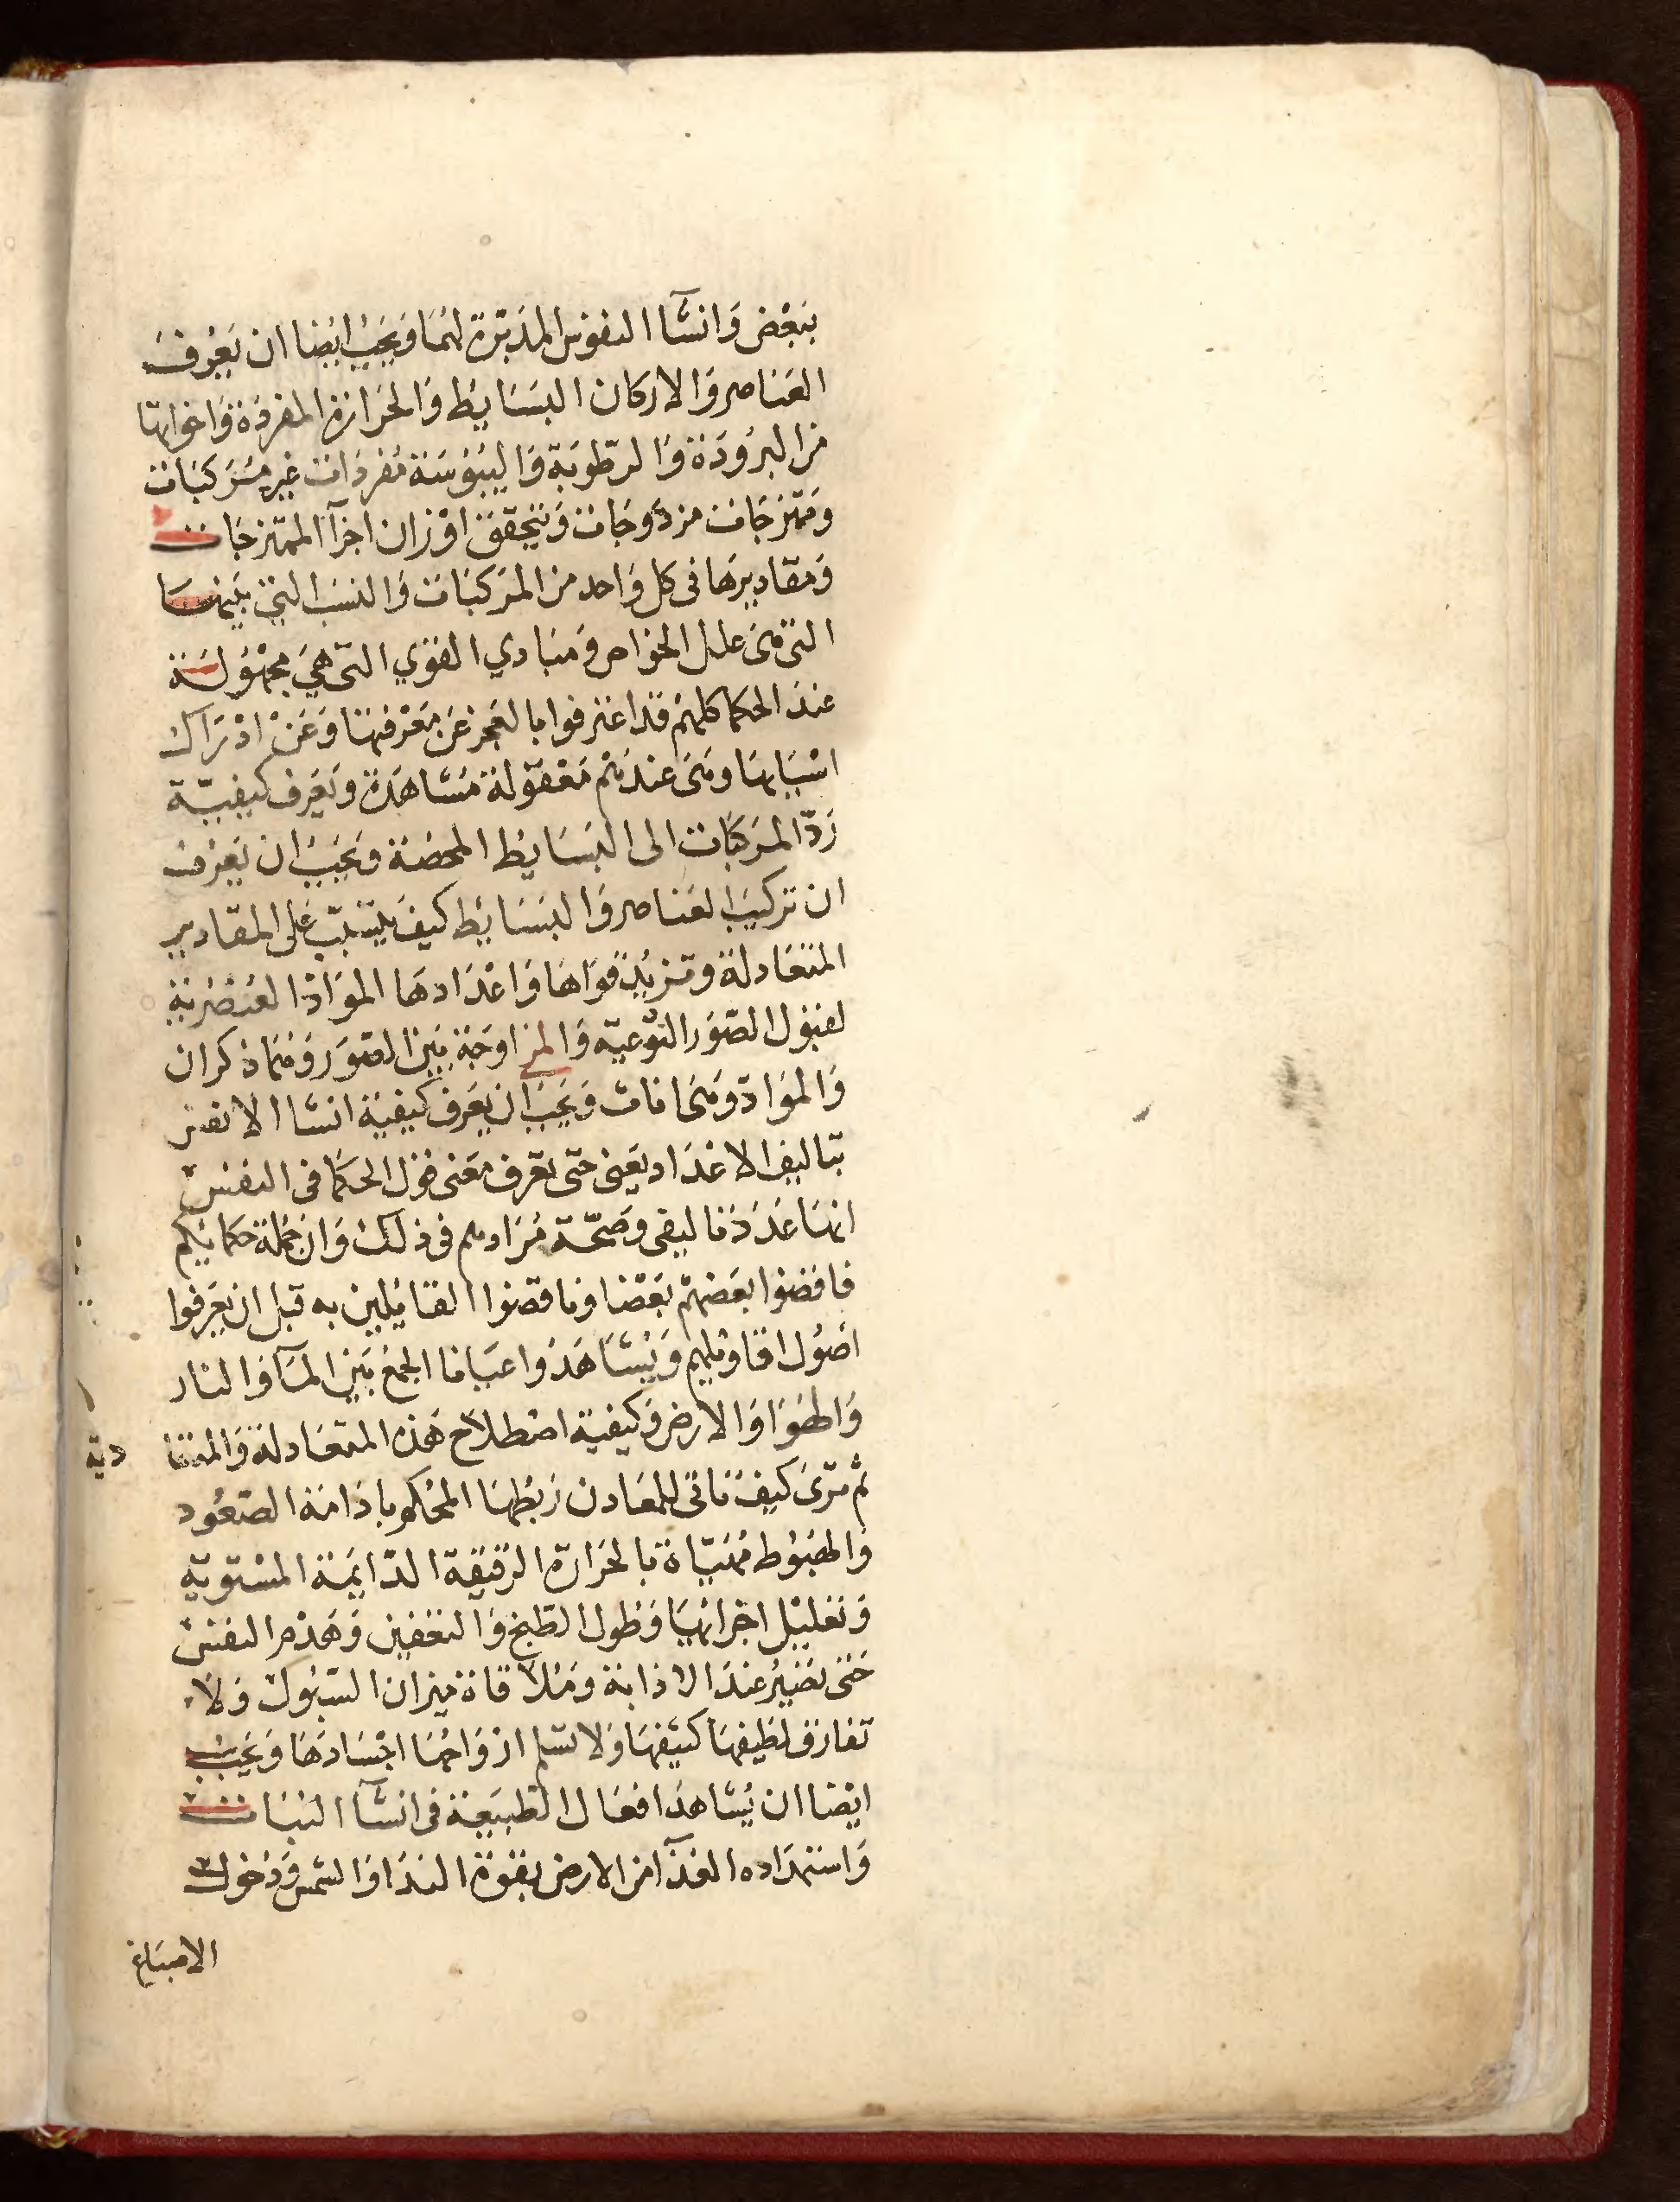 ببعض وانشآ النفوس المدبرة لهما ويجب ايضا ان يعرف
العناصر والاركان البسايط والحرارة المفردة واخواتها
من البرودة والرطوبة واليبوسة مفردات غير مركبات
وممتزجات مزدوجات ويتحقق اوزان اجزآ الممتزجات
ومقاديرها فى كل واحد من المركبات والنسب التي بينها
التى هى علل الخواص ومبادي القوي التى هى مجهولة
عند الحكما كلهم قد اعترفوا بالعجز عن معرفتها وعن ادراك
اسبابها وهى عندهم معقولة مشاهدة ويعرف كيفية
رد المركبات الى البسايط المحضة ويجب ان يعرف
ان تركيب العناصر والبسايط كيف على المقادير
المتعادلة وتزيد قواها واعدادها المواد العنصرية
لقبول الصور النوعية والمزاوجة بين الصور وهما ذكران
والمواد وهى اناث ويجب ان يعرف كيفية انشا الانفس
بتاليف الاعداد يعنى حتى تعرف معنى قول الحكما فى النفس
انها عدد تاليفى وصحة مرادهم فى ذلك وان جملة حكمائكم
ناقضوا بعضهم بعضا وناقضوا القايلين به قبل ان يعرفوا
اصول اقاويلهم ويشاهدوا عيانا الجمع بين المآ والنار
والهوا والارض وكيفية اصطلاح هذه المتعادلة والمتعا دية
ثم ترى كيف تاتى للمعادن ربطها المحكم وبادامة الصعود
والهبوط مهيّاة بالحرارة الرقيقة الدايمة المستوية
وتقليل اجزائها وطول الطبخ والتعفين وهدم النفس
حتى تصير عند الاذابة وملاقاة نيران السبوك ولا
تفارق لطيفها كثيفها ولا تسلم ارواحها اجسادها ويجب
ايضا ان يشاهد افعال الطبيعة فى انشآ النبات
واستمداده الغذآ من الارض بقوة الندا والشمس ودخول
الاصباغ